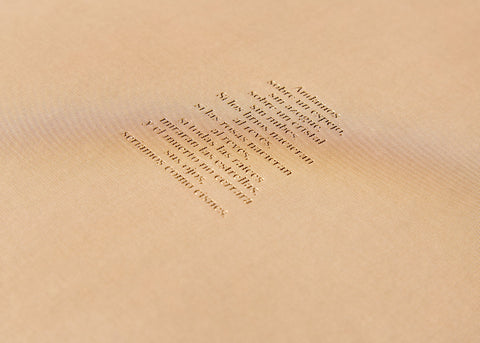 Andamos
sobre un espejo,
sin azogue,
sobre un cristal
sin nubes.
Si los lirios nacieran
al revés,
si las rosas nacieran
al revés,
si todas las raíces
miraran las estrellas,
y el muerto no cerrara
sus ojos,
seríamos como cisnes.